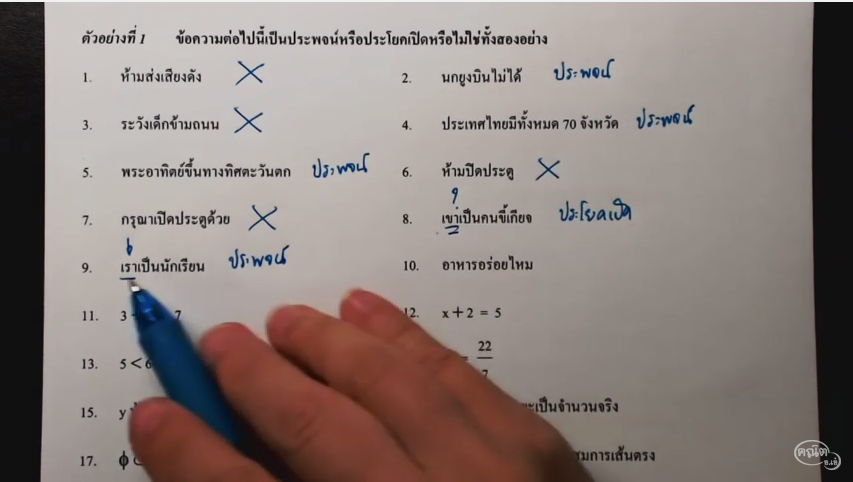 ตัวอย่างที่ 1 ข้อความต่อไปนี้เป็นประพจน์หรือประโยคเปิดหรือไม่ใช่ทั้งสองอย่าง
1. ห้ามส่งเสียงดัง ✗ 2. นกยูงบินไม่ได้ ประพจน์
3. ระวังเด็กข้ามถนน ✗ 4. ประเทศไทยมีทั้งหมด 70 จังหวัด ประพจน์
5. พระอาทิตย์ขึ้นทางทิศตะวันตก ประพจน์ 6. ห้ามปิดประตู ✗
?
7. กรุณาเปิดประตูด้วย ✗ 8. เขาเป็นคนขี้เกียจ ประโยคเปิด
9. เราเป็นนักเรียน ประพจน์ 10. อาหารอร่อยไหม
11. 3 7 12. x + 2 = 5
13. 5 < 6 = 22/7
15. y เป็นจำนวนจริง
17. ϕ สมการเส้นตรง
คณิต
อ.เอ๋